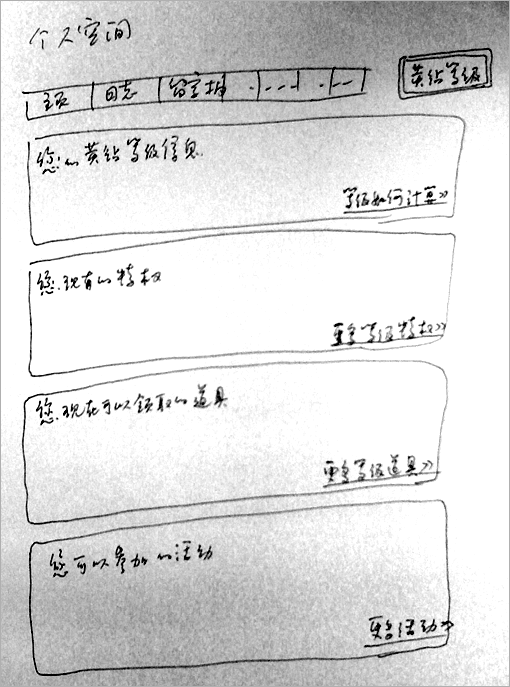 个人空间
主页 日志 留言板 .--- .--
黄钻等级
您的黄钻等级信息
等级如何计算>>
您现有的特权
更多等级特权>>
您现在可以领取的道具
更多等级道具>>
您可以参加的活动
更多活动>>